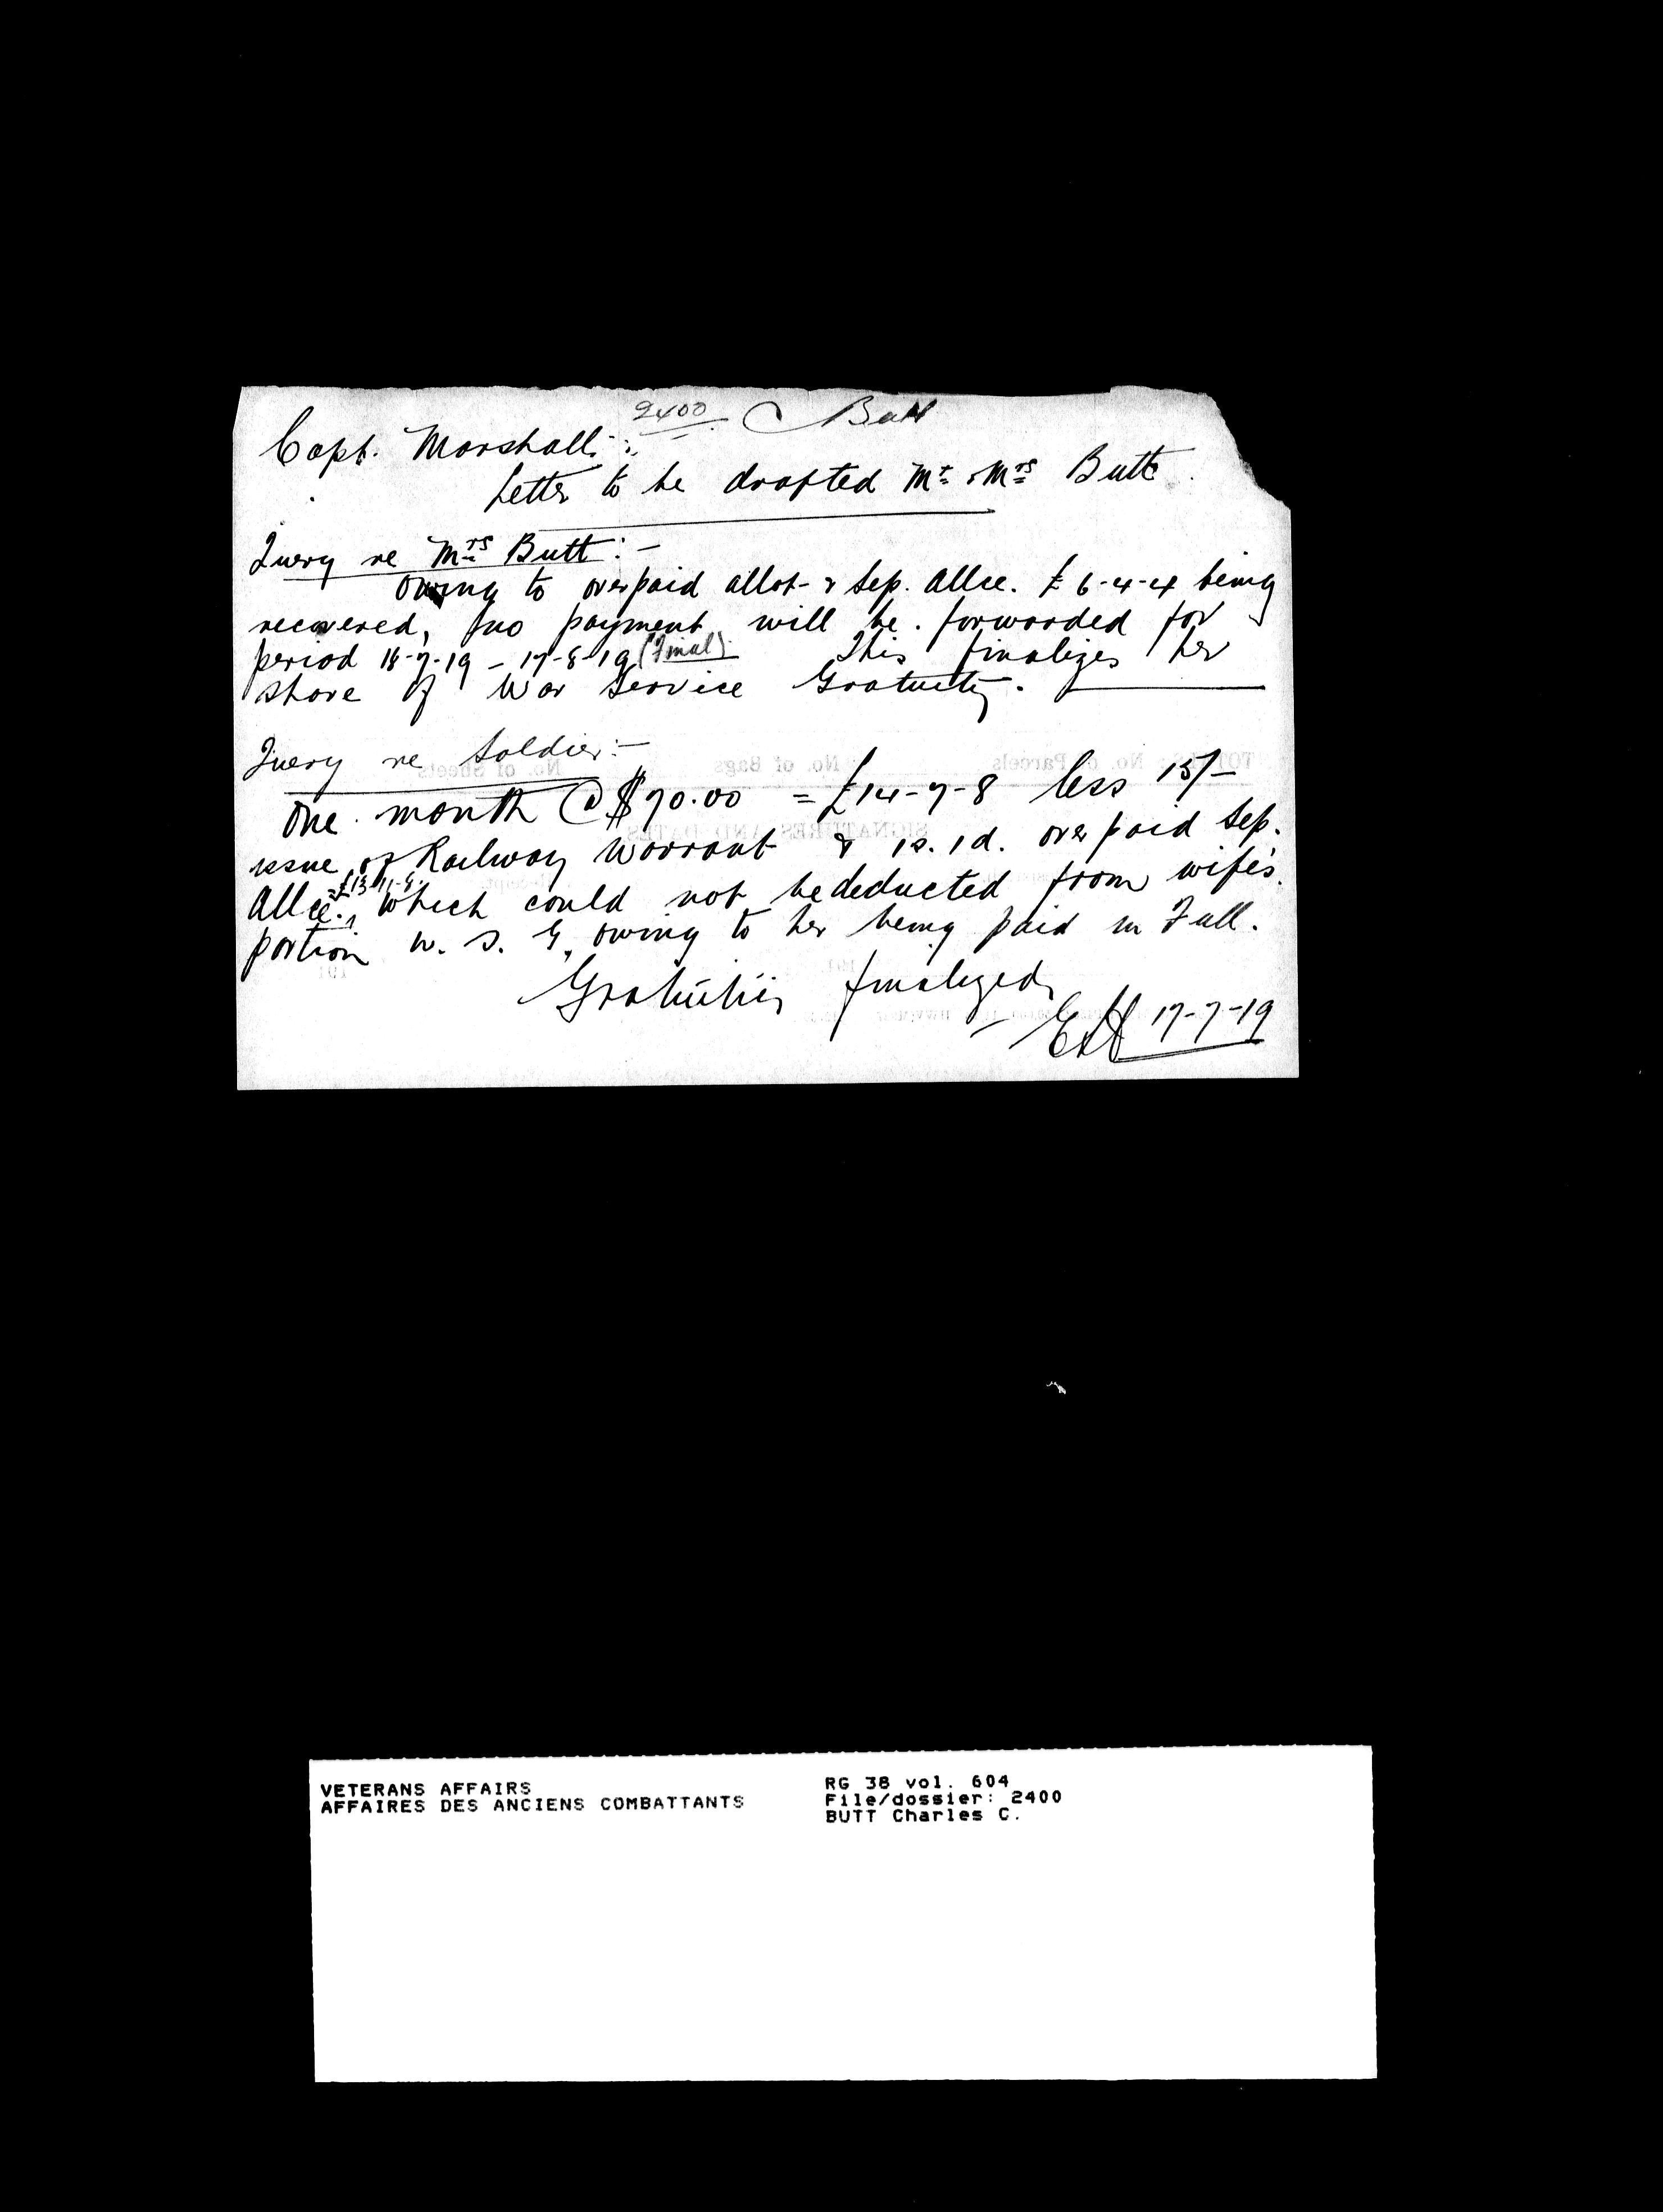 2400 C Butt
Capt. Marshall:
Letter to be drafted Mr & Mrs Butt.
Query re Mrs Butt:-
Owing to overpaid allot- & Sep. Allce. £6-4-4 being
recovered, no payment will be forwarded for
period 18-7-19 - 17-8-19 (Final) This finalizes her
share of War Service Gratuity.
Query re Soldier:-
One month @ $70.00 = £14-7-8 less 15/-
issue of Railway Warrant & 1s. 1d. overpaid Sep.
Allce. = £13-11-8, which could not be deducted from wife's
portion W. S. G. owing to her being paid in Full.
Gratuities finalized
17-7-19
TOTALS: No. of Parcels No. of Bags No. of Sheets
SIGNATURES AND DATES
VETERANS AFFAIRS
AFFAIRES DES ANCIENS COMBATTANTS
RG 38 vol. 604
File/dossier: 2400
BUTT Charles C.